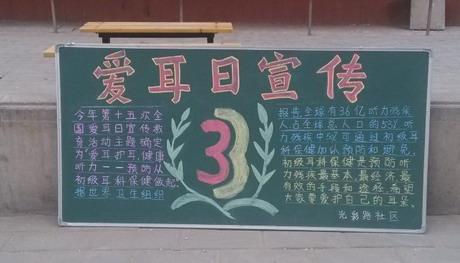 爱耳日宣传
今年第十五次全
国爱耳日宣传教
育活动主题确定
为"爱耳护耳,健康
听力——预防从
初级耳科保健做起。"
据世界卫生组织
33
报告,全球有3.6亿听力残疾
人,占全球总人口的5.3%,听
力残疾中50%可通过初级耳
科保健加以预防和避免,
初级耳科保健是预防听
力残疾最基本、最经济、最
有效的手段和途径,希望
大家要爱护自己的耳朵。
光彩路社区